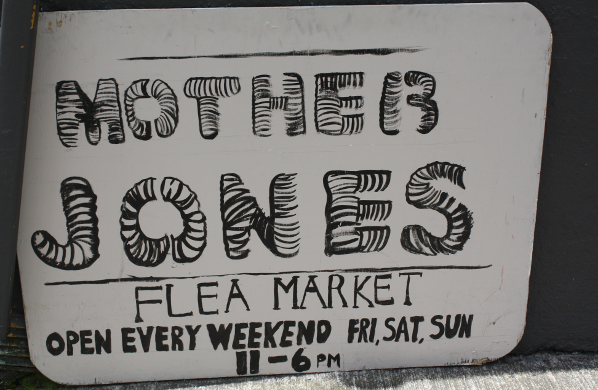 MOTHER
JONES
FLEA MARKET
OPEN EVERY WEEKEND FRI, SAT, SUN
11-6 PM